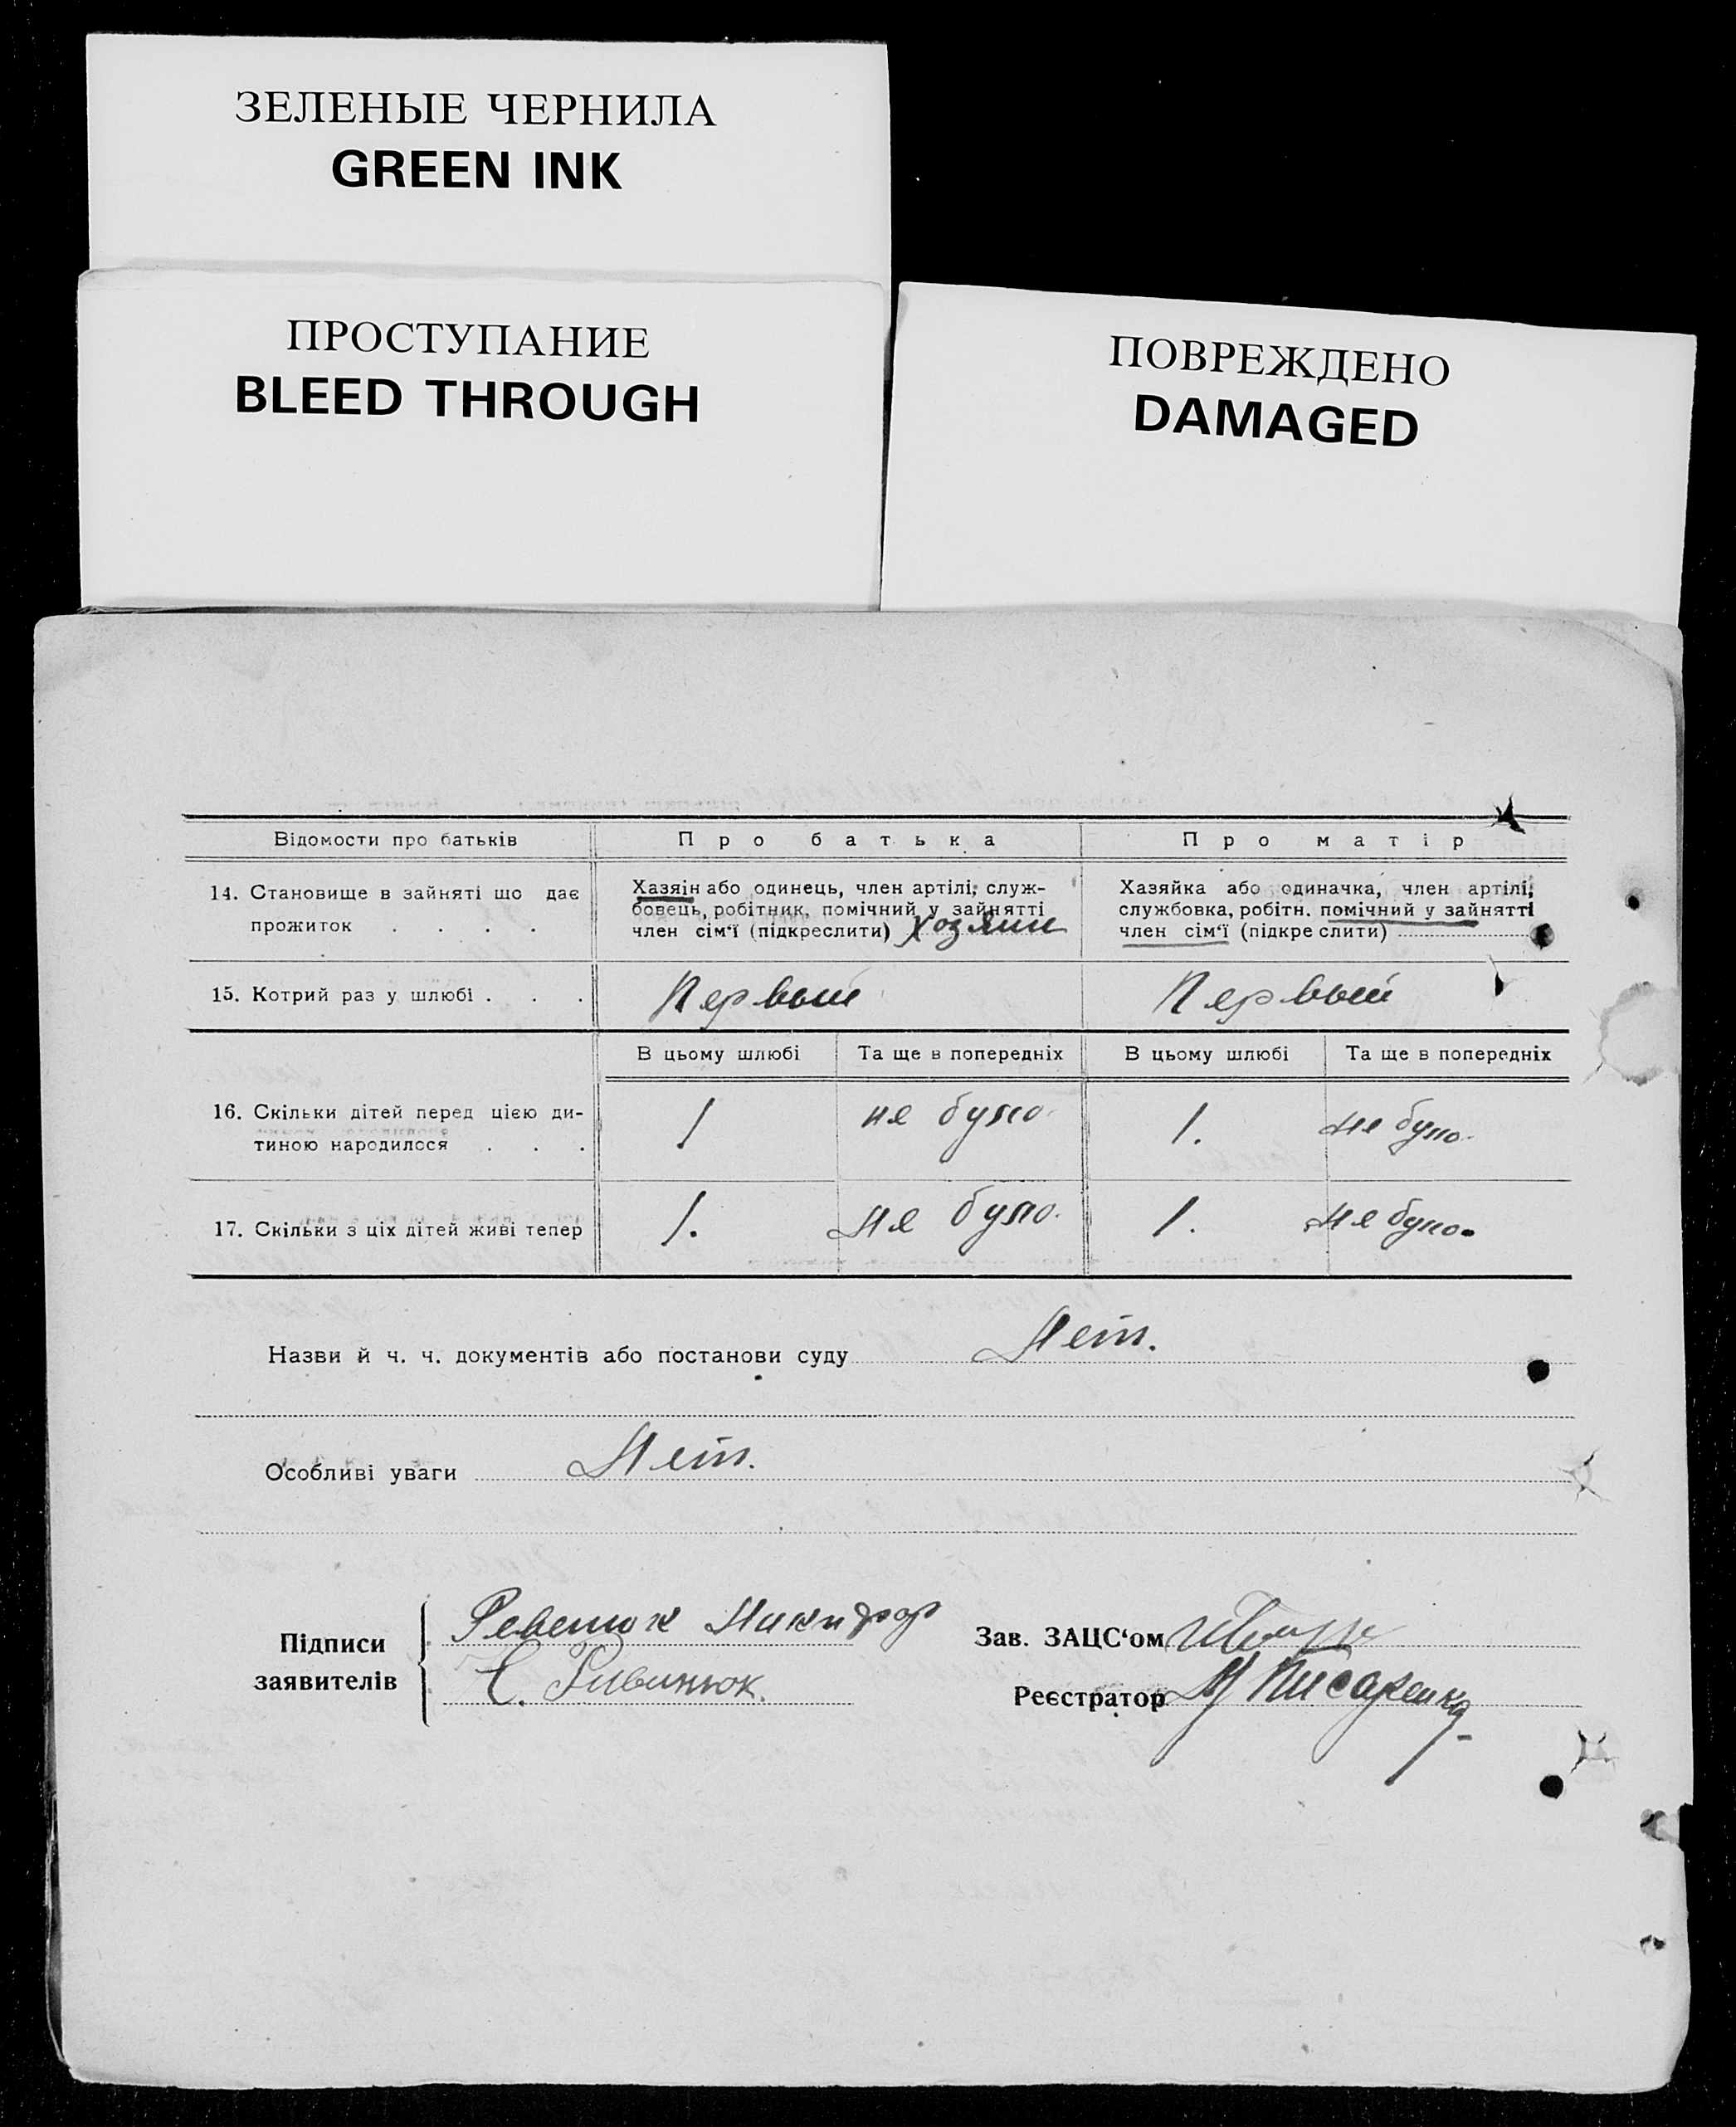 ЗЕЛЕНЫЕ ЧЕРНИЛА
GREEN INK
ПРОСТУПАНИЕ
BLEED THROUGH
ПОВРЕЖДЕНО
DAMAGED
Відомости про батьків
Про батька
Про матір
14. Становище в зайняті що дає
прожиток . . . .
Хазяін або одинець, член артілі; служ-
бовець, робітник, помічний у зайнятті
член сім'ї (підкреслити) хозяин
Хазяйка або одиначка, член артілі,
службовка, робітн. помічний у зайнятті
член сім'ї (підкреслити)
15. Котрий раз у шлюбі . . .
Первый
Первый
В цьому шлюбі
Та ще в попередніх
В цьому шлюбі
Та ще в попередніх
16. Скільки дітей перед цією ди-
тиною народилося . . .
1
не було.
1.
не було.
17. Скільки з ціх дітей живі тепер
1.
не було.
1.
не було.
Назви й ч. ч. документів або постанови суду Нет.
Особливі уваги Нет.
Підписи
заявителів
Ревенюк Никифор
Є. Ривинюк.
Зав. ЗАЦС'ом
Реєстратор Писаренко